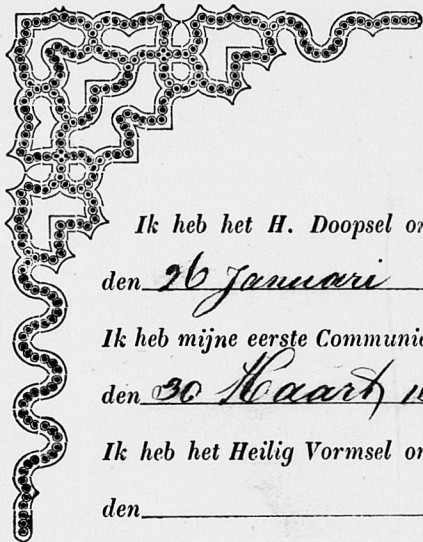 Ik heb het H. Doopsel on
den 26 Januari
Ik heb mijne eerste Communie
den 30 Maart 18
Ik heb het Heilig Vormsel on
den